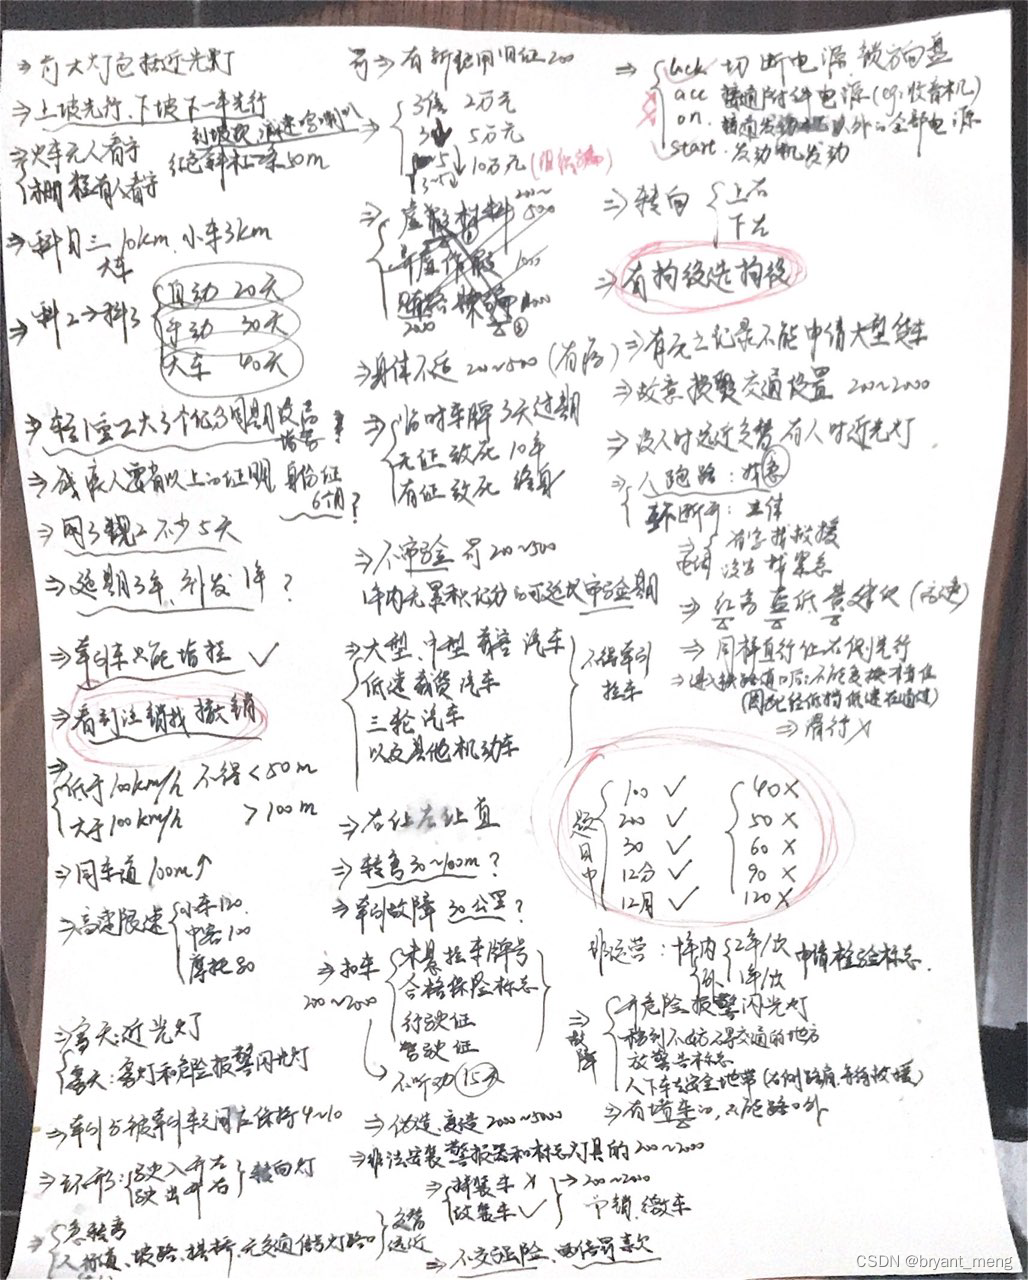 ⇒ 有大灯包括近光灯
⇒ 上坡先行、下坡下一半先行
到坡顶 减速鸣喇叭
⇒ 火车无人看守 红色斜杠一条50m
栅栏有人看守
⇒ 科目三 10km 小车3km
大车
⇒ 科2→科3
自动 20天
手动 30天
大车 40天
⇒ 轻1重2大3个记分周期
⇒ 残疾人要省以上的证明 身份证
6个月?
⇒ 网3现2 不少5天
⇒ 延期3年、补发1年?
⇒ 牵引车只能增挂 ✓
⇒ 看到注销找撤销
⇒ 低于100km/h 不得<50m
大于100km/h >100m
⇒ 同车道100m↑
⇒ 高速限速
小车120
中客100
摩托80
⇒ 雪天:近光灯
雾天:雾灯和危险报警闪光灯
⇒ 牵引与被牵引车之间应保持4~10
⇒ 环形: 驶入开左 转向灯
驶出开右
⇒ 急转弯
坡路、拱桥、无交通信号灯路口
交替
远近
罚⇒ 有新驾用旧证200
⇒ 3倍 2万元
5万元
10万元
⇒ 虚假材料
⇒ 身体不适 200~500 (有病)
⇒ 临时车牌 3天过期
无证致死 10年
有证致死 终身
⇒ 不审验 罚200~500
1年内无累积记分的可延长审验期
⇒ 大型、中型载客汽车
低速载货汽车
三轮汽车
以及其他机动车
不得牵引
挂车
⇒ 右让左让直
⇒ 转弯30~100m?
⇒ 牵引故障 30公里?
⇒ 扣车
200~2000
未悬挂车牌号
合格保险标志
行驶证
驾驶证
不听劝 15天
⇒ 伪造变造 2000~5000
⇒ 非法安装警报器和标志灯具的 200~2000
⇒ 拼装车 ×
改装车 ✓
→ 200~2000
吊销、缴车
⇒ 不交强险、两倍罚款
⇒ lock 切断电源,锁方向盘
acc 接通附件电源 (eg:收音机)
on. 接通发动机以外的全部电源
start. 发动机发动
⇒ 转向
上右
下左
⇒ 有拘役选拘役
⇒ 有死亡记录不能申请大型货车
⇒ 故意损毁交通设置 200~2000
⇒ 没人时远近交替 有人时近光灯
⇒ 人跑路:
⇒ 红 蓝 黄
⇒ 同样直行让右侧先行
⇒ 进入铁路道口后:不能变换档位
⇒ 滑行×
题目中
100 ✓
200 ✓
30 ✓
12分 ✓
12月 ✓
40 ×
50 ×
60 ×
90 ×
120 ×
非运营:
2年/次
1年/次
申请检验标志
⇒ 故障
开危险报警闪光灯
移到不妨碍交通的地方
放警告标志
人下车去安全地带
⇒ 有堵车的
CSDN @bryant_meng